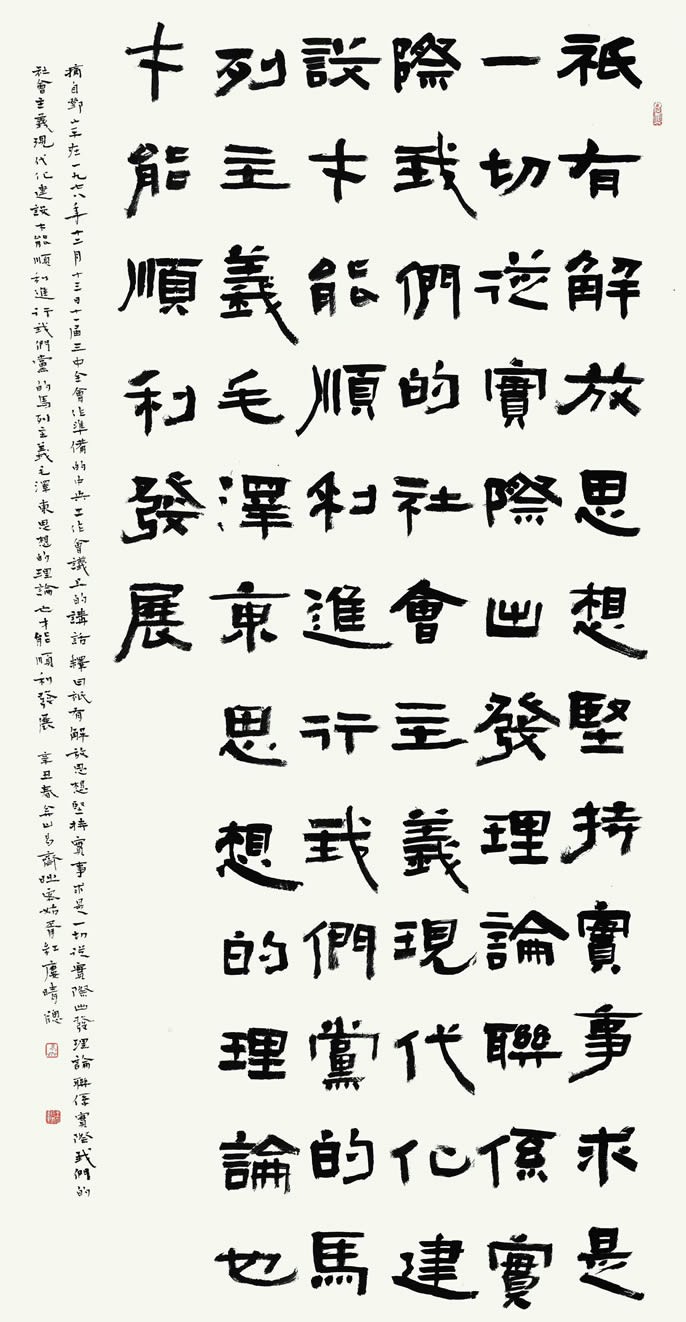 祇有解放思想堅持實事求是
一切從實際出發理論聯係實
際我們的社會主義現代化建
設才能順利進行我們黨的馬
列主義毛澤東思想的理論也
才能順利發展
摘自鄧小平在一九七八年十二月十三日十一屆三中全會作準備的中央工作會議上的講話 釋曰祇有解放思想堅持實事求是一切從實際出發理論聯係實際我們的
社會主義現代化建設才能順利進行我們黨的馬列主義毛澤東思想的理論也才能順利發展 辛丑春 姑胥紅廔晴牕